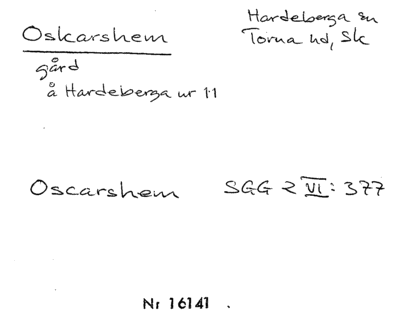 Oskarshem
Hardeberga sn
Torna hd, Sk
gård
å Hardeberga nr 11
Oscarshem SGG 2 VI: 377
Nr 16141